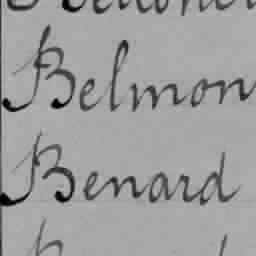 Belmon
Benard